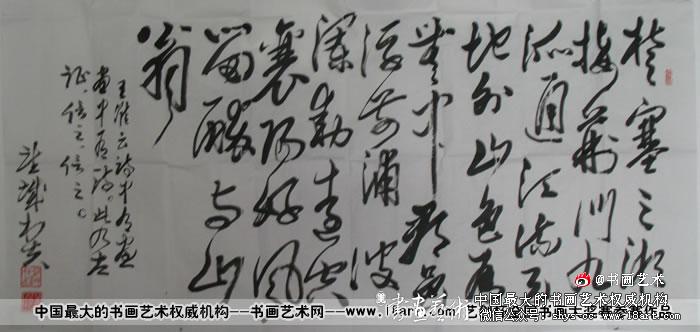 楚塞三湘
接荆门九
派通江流天
地外山色有
無中郡邑
浮前浦波
澜動遠空
襄阳好风日
留醉与山
翁
王维云诗中有画
画中有诗。此乃古
证。信之信之。
@书画艺术
中国最大的书画艺术权威机构
中国最大的书画艺术权威机构——书画艺术网——www.18art.com